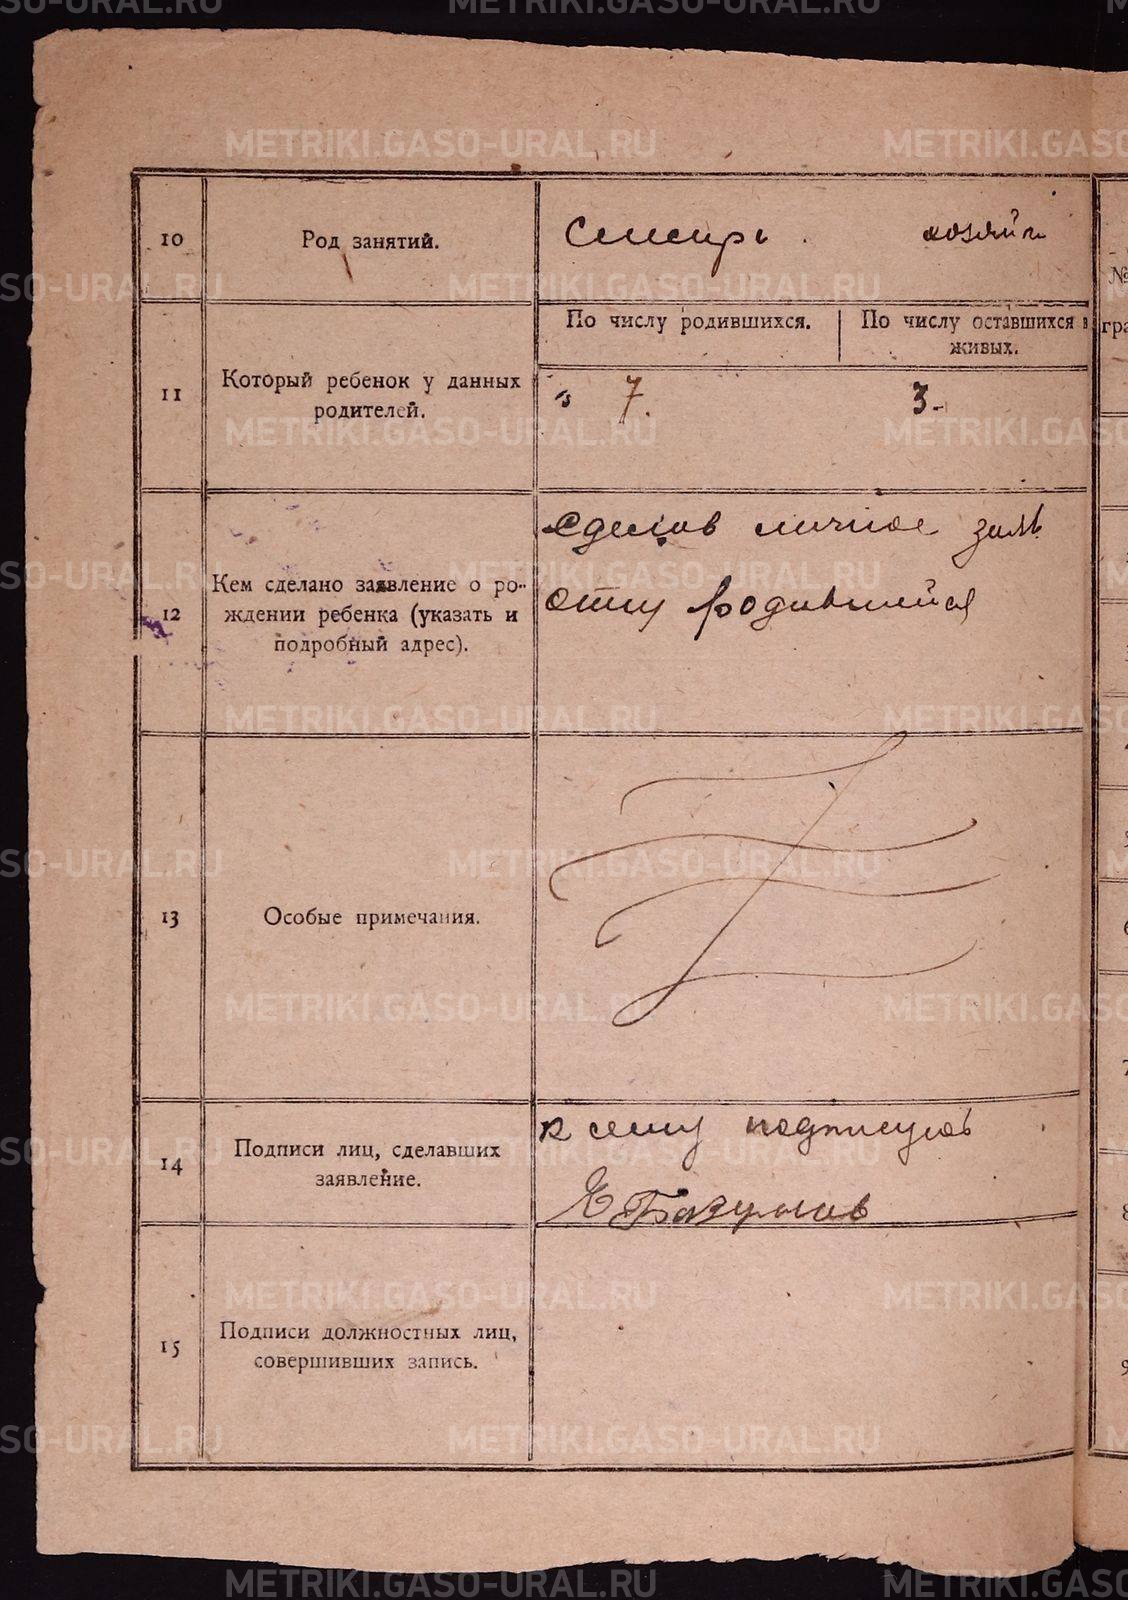 METRIKI.GASO-URAL.RU
10 Род занятий. Слесарь. хозяйк
По числу родившихся. По числу оставшихся в живых.
11 Который ребенок у данных
родителей.
7. 3-
сделав личное заяв
12 Кем сделано заявление о ро-
ждении ребенка (указать и
подробный адрес).
отец родившейся
13 Особые примечания.
к сему подписуюсь
14 Подписи лиц, сделавших
заявление.
15 Подписи должностных лиц,
совершивших запись.
№
гра